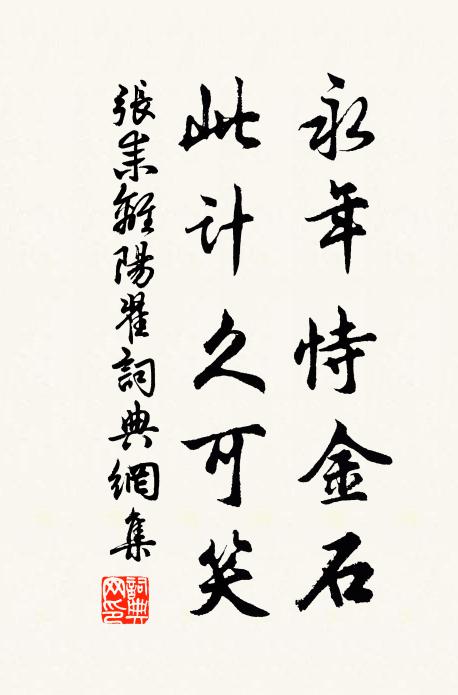 永年恃金石
此计久可笑
張耒離陽翟詞典網集
詞典网印